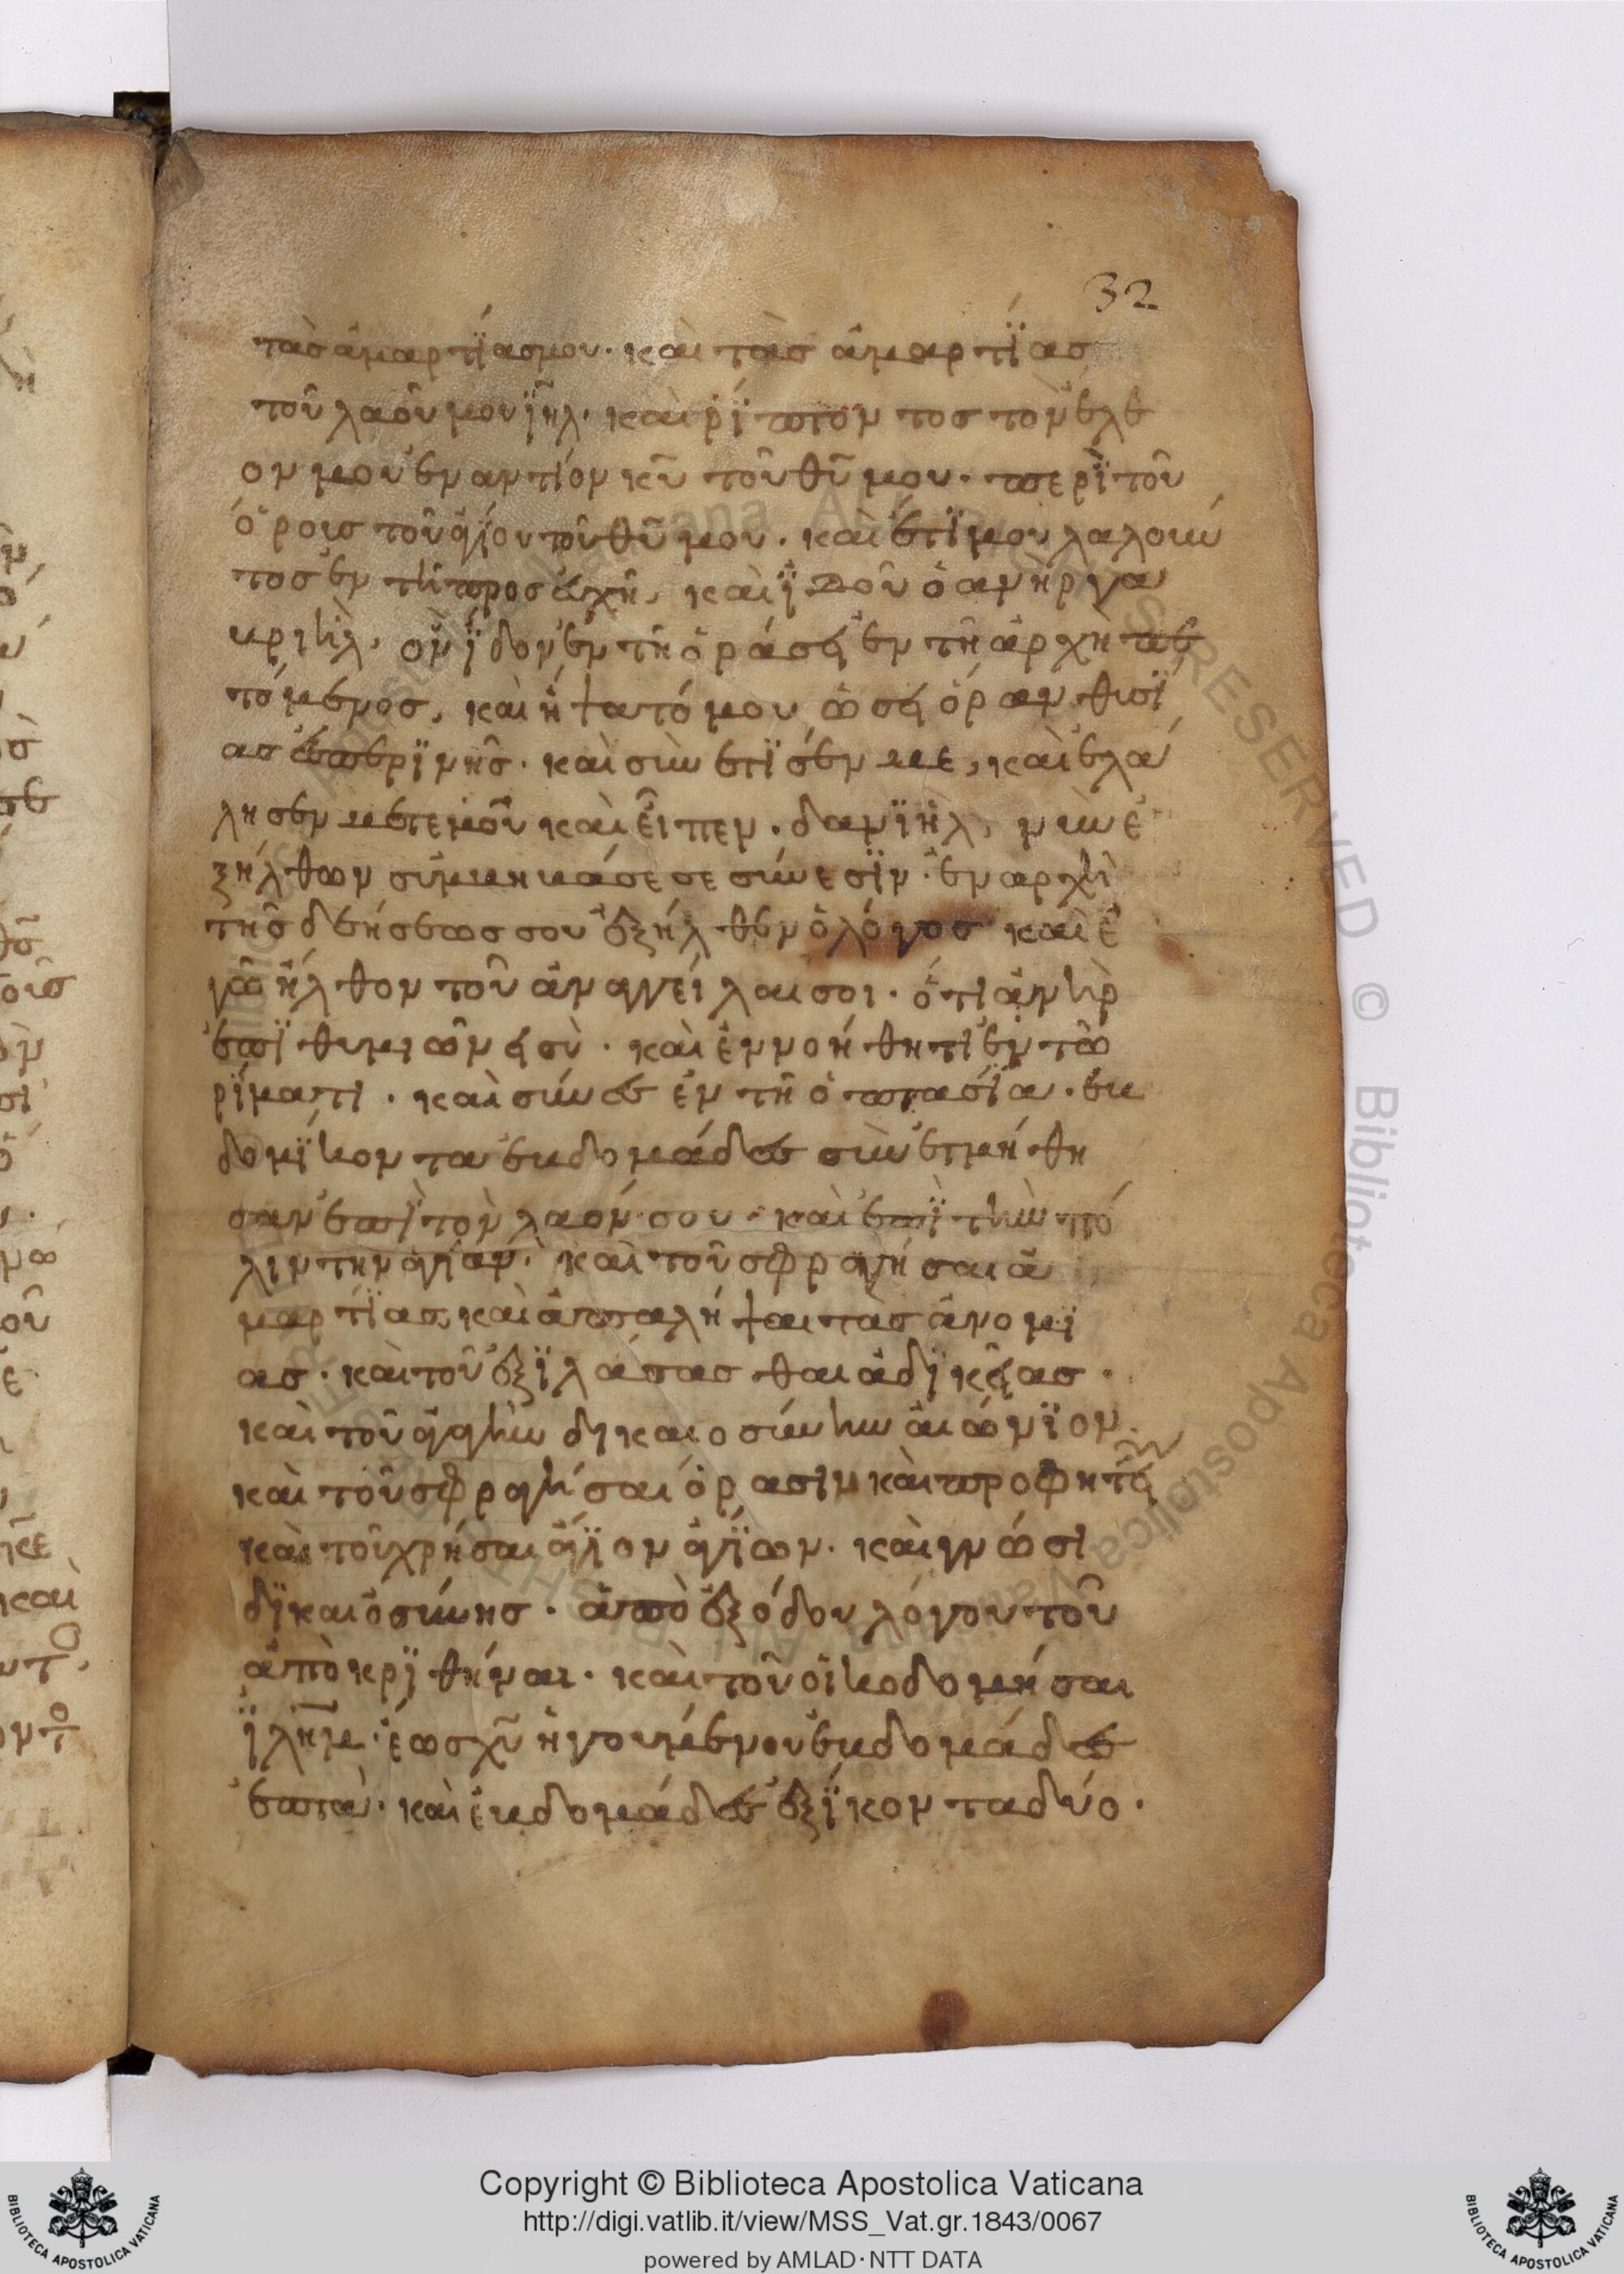 32
τὰσ ἁμαρτΐασ μου· καὶ τὰσ ἁμαρτΐασ
τοῦ λαοῦ μου ϊη̅λ· καὶ ρΐπτοντοσ τὸν ἔλε
ον μου ἐναντίον κ̅υ τοῦ θ̅υ μου· περῒ τοῦ
ὄρουσ τοῦ ἁγίου τοῦ θ̅υ μου· καὶ ἔτϊ μου λαλοῦν
τοσ ἐν τῆ προσευχῆ, καὶ ϊδοῦ ὁ ἀνὴρ γα
βριὴλ, ὃν ΐδον ἐν τῆ ὁράσει ἐν τῆ ἀρχῆ πε
τόμενοσ, καὶ ἥψατό μου ὡσεὶ ὥραν θυσΐ
ασ ἑσπερϊνῆσ· καὶ συνέτϊσέν με, καὶ ἐλά
λησεν μετ ἐμοῦ καὶ εἶπεν· δανϊὴλ, νῦν ἐ
ξήλθων συμβηβάσε σε σύνεσϊν· ἐν ἀρχὴ
τῆσ δεήσεωσ σου ἐξήλθεν ὁ λόγοσ καὶ ἐ
γὼ ἦλθον τοῦ ἀναγγεῖλαι σοι· ὅτι ἀνὴρ
ἐπϊθυμιῶν εἶ σὺ· καὶ ἐννοήθητι ἐν τῶ
ρΐματι· καὶ σύνεσ ἐν τῆ ὀπτασΐα· ἑβ
δομΐκοντα ἑβδομάδεσ συνετμήθη
σαν ἐπῒ τὸν λαόν σου· καὶ ἐπῒ τὴν πό
λιν τὴν ἁγίαν· καὶ τοῦ σφραγήσαι ἁ
μαρτΐασ, καὶ ἀπαλήψαι τὰσ ἀνομΐ
ασ· καὶ τοῦ ἐξϊλάσασθαι ἀδϊκείασ·
καὶ τοῦ ἀγαγῆν δηκαιοσύνην αἰώνϊον·
καὶ τοῦ σφραγήσαι ὅρασιν καὶ προφητείαν
καὶ τοῦ χρήσαι ἅγϊον ἁγΐων· καὶ γνώσι
δϊκαιοσύνησ· ἀπὸ ἐξόδου λόγου τοῦ
ἀποκρϊθήναι· καὶ τοῦ οἰκοδομήσαι
ϊλη̅μ· ἕωσ χ̅υ ἡγουμένου ἑβδομάδεσ
ἑπτὰ· καὶ ἑβδομάδεσ ἑξΐκοντα δύο·
Copyright © Biblioteca Apostolica Vaticana
http://digi.vatlib.it/view/MSS_Vat.gr.1843/0067
powered by AMLAD·NTT DATA
BIBLIOTECA APOSTOLICA VATICANA
BIBLIOTECA APOSTOLICA VATICANA